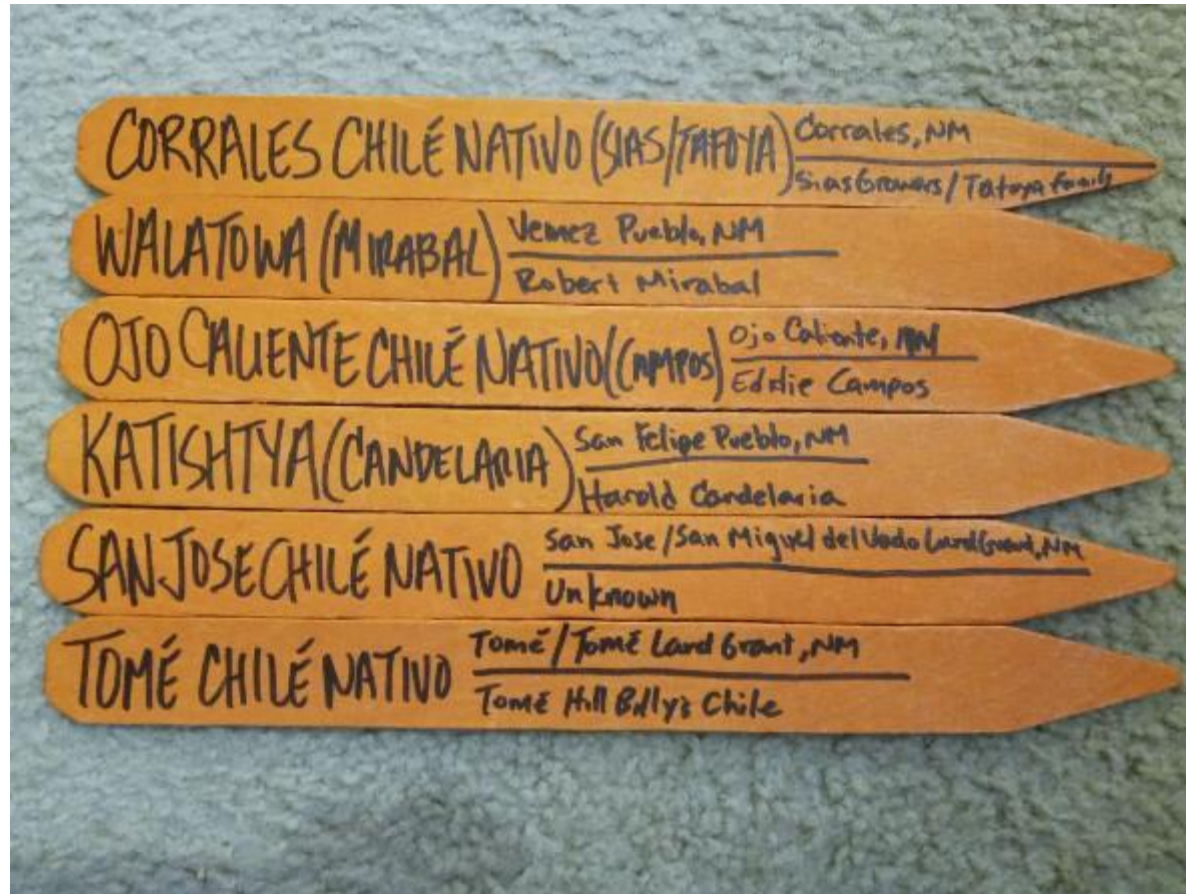 CORRALES CHILÉ NATIVO (SIAS/TAFOYA) Corrales, NM
Sias Growers / Tafoya family
WALATOWA (MIRABAL) Jemez Pueblo, NM
Robert Mirabal
OJO CALIENTE CHILÉ NATIVO (CAMPOS) Ojo Caliente, NM
Eddie Campos
KATISHTYA (CANDELARIA) San Felipe Pueblo, NM
Harold Candelaria
SAN JOSE CHILÉ NATIVO San Jose / San Miguel del Vado Land Grant, NM
Unknown
TOMÉ CHILÉ NATIVO Tomé / Tomé Land Grant, NM
Tomé Hill Billy's Chile